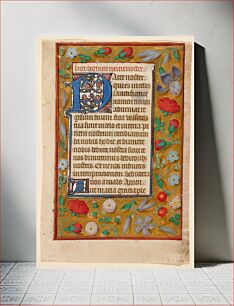 Pater noster
qui es in celis
sanctificetur
nomen tuum
adveniat re
gnum tuum fiat voluntas
tua sicut in celo et in terra Pa
nem nostrum cotidianum
da nobis hodie et dimitte
nobis debita nostra sicut et
nos dimittimus debitoribus
nostris Et ne nos inducas
in temptacionem Sed libera
nos a malo Amen
ue maria gracia ple